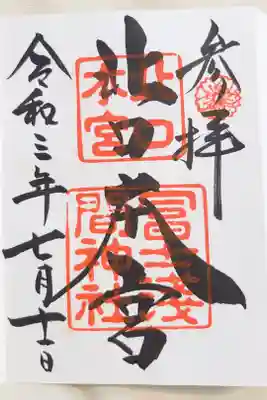 参拝
北口本宮
北口
本宮
冨士淺
間神社
令和三年七月十一日